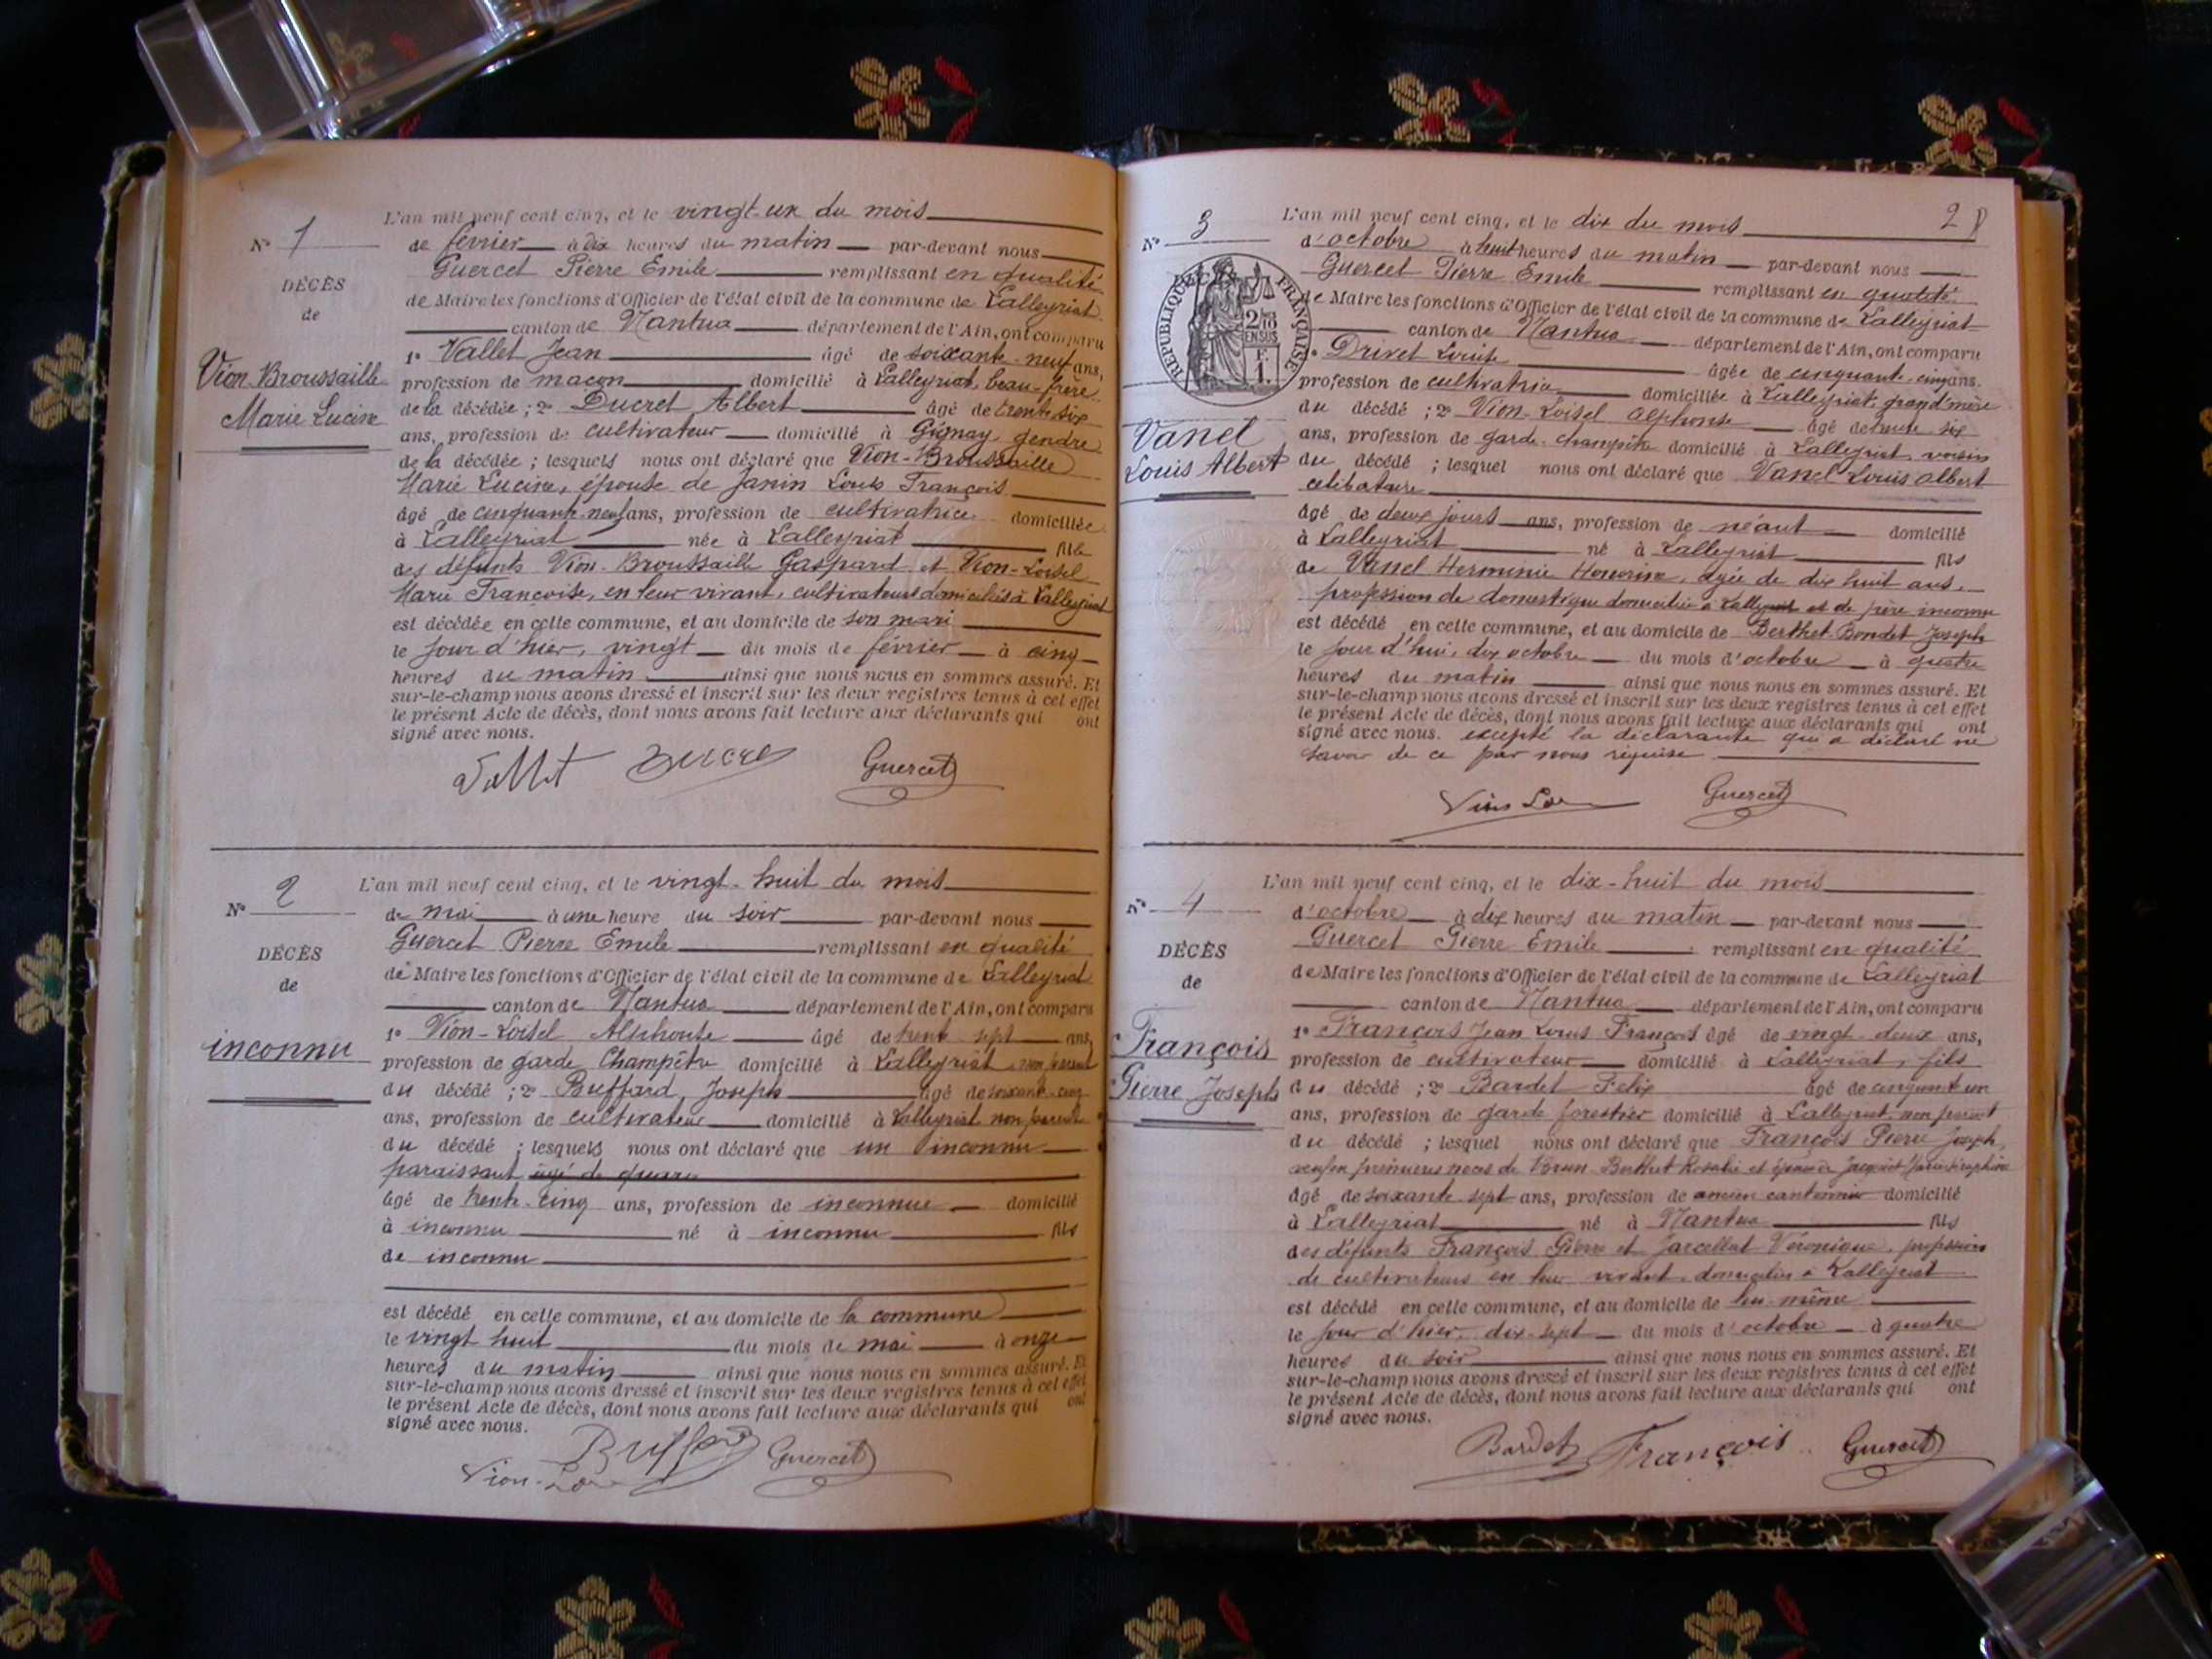 L'an mil neuf cent cinq, et le vingt-un du mois
N° 1
de février à dix heures du matin par-devant nous
Guercet Pierre Emile remplissant en qualité
DÉCÈS
de Maire les fonctions d'Officier de l'état civil de la commune de Lalleyriat
de
canton de Nantua département de l'Ain, ont comparu
1° Vallet Jean âgé de soixante-neuf ans,
Vion-Broussaille
profession de maçon domicilié à Lalleyriat, beau-frère
Marie Lucine
de la décédée ; 2° Ducret Albert âgé de trente six
ans, profession de cultivateur domicilié à Gignay, gendre
de la décédée ; lesquels nous ont déclaré que Vion-Broussaille
Marie Lucine, épouse de Janin Louis François
âgé de cinquante-neuf ans, profession de cultivatrice domiciliée
à Lalleyriat née à Lalleyriat fille
des défunts Vion-Broussaille Gaspard et Vion-Loisel
Marie Françoise, en leur vivant, cultivateurs domiciliés à Lalleyriat
est décédée en cette commune, et au domicile de son mari
le jour d'hier, vingt du mois de février à cinq
heures du matin ainsi que nous nous en sommes assuré. Et
sur-le-champ nous avons dressé et inscrit sur les deux registres tenus à cet effet
le présent Acte de décès, dont nous avons fait lecture aux déclarants qui ont
signé avec nous.
Vallet Ducret Guercet
L'an mil neuf cent cinq, et le vingt-huit du mois
N° 2
de mai à une heure du soir par-devant nous
Guercet Pierre Emile remplissant en qualité
DÉCÈS
de Maire les fonctions d'Officier de l'état civil de la commune de Lalleyriat
de
canton de Nantua département de l'Ain, ont comparu
1° Vion-Loisel Alphonse âgé de trente sept ans,
inconnu
profession de garde Champêtre domicilié à Lalleyriat non parent
du décédé ; 2° Buffard Joseph âgé de soixante-cinq
ans, profession de cultivateur domicilié à Lalleyriat non parent
du décédé ; lesquels nous ont déclaré que un inconnu
paraissant âgé de quara
âgé de trente-cinq ans, profession de inconnue domicilié
à inconnu né à inconnu fils
de inconnu
est décédé en cette commune, et au domicile de la commune
le vingt huit du mois de mai à onze
heures du matin ainsi que nous nous en sommes assuré. Et
sur-le-champ nous avons dressé et inscrit sur les deux registres tenus à cet effet
le présent Acte de décès, dont nous avons fait lecture aux déclarants qui ont
signé avec nous.
Vion-Loi Buffard Guercet
2
L'an mil neuf cent cinq, et le dix du mois
N° 3
d'octobre à huit heures du matin par-devant nous
Guercet Pierre Emile remplissant en qualité
RÉPUBLIQUE FRANÇAISE
de Maire les fonctions d'Officier de l'état civil de la commune de Lalleyriat
canton de Nantua département de l'Ain, ont comparu
1° Drivet Louise âgée de cinquante-cinq ans,
profession de cultivatrice domiciliée à Lalleyriat, grand'mère
du décédé ; 2° Vion-Loisel Alphonse âgé de trente six
Vanel
Louis Albert
ans, profession de garde-champêtre domicilié à Lalleyriat voisin
du décédé ; lesquel nous ont déclaré que Vanel Louis Albert
célibataire
âgé de deux jours ans, profession de néant domicilié
à Lalleyriat né à Lalleyriat fils
de Vanel Herminie Honorine, âgée de dix huit ans,
profession de domestique domiciliée à Lalleyriat et de père inconnu
est décédé en cette commune, et au domicile de Berthet-Bondet Joseph
le jour d'hui, dix octobre du mois d'octobre à quatre
heures du matin ainsi que nous nous en sommes assuré. Et
sur-le-champ nous avons dressé et inscrit sur les deux registres tenus à cet effet
le présent Acte de décès, dont nous avons fait lecture aux déclarants qui ont
signé avec nous. excepté la déclarante qui a déclaré ne
savoir de ce par nous requise
Vion Loi Guercet
L'an mil neuf cent cinq, et le dix-huit du mois
N° 4
d'octobre à dix heures du matin par-devant nous
Guercet Pierre Emile remplissant en qualité
DÉCÈS
de Maire les fonctions d'Officier de l'état civil de la commune de Lalleyriat
de
canton de Nantua département de l'Ain, ont comparu
1° François Jean Louis François âgé de vingt-deux ans,
François
profession de cultivateur domicilié à Lalleyriat, fils
Pierre Joseph
du décédé ; 2° Bardet Felix âgé de cinquante un
ans, profession de garde forestier domicilié à Lalleyriat, non parent
du décédé ; lesquel nous ont déclaré que François Pierre Joseph
veuf en premières noces de Berthet Rosalie et époux de Marie Séraphine
âgé de soixante-sept ans, profession de ancien cantonnier domicilié
à Lalleyriat né à Nantua fils
des défunts François Pierre et Jarcellat Véronique, profession
de cultivateurs en leur vivant domiciliés à Lalleyriat
est décédé en cette commune, et au domicile de lui-même
le jour d'hier, dix-sept du mois d'octobre à quatre
heures du soir ainsi que nous nous en sommes assuré. Et
sur-le-champ nous avons dressé et inscrit sur les deux registres tenus à cet effet
le présent Acte de décès, dont nous avons fait lecture aux déclarants qui ont
signé avec nous.
Bardet François Guercet